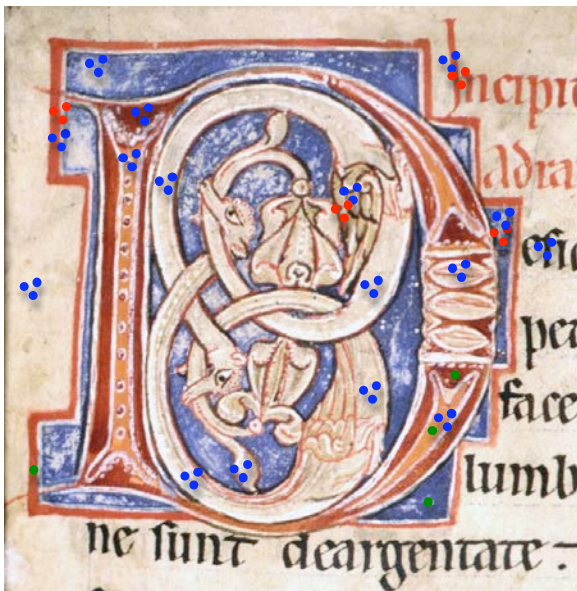 Incipit
ad ra
Desi
pet
face
lumb
ne sunt deargentate.